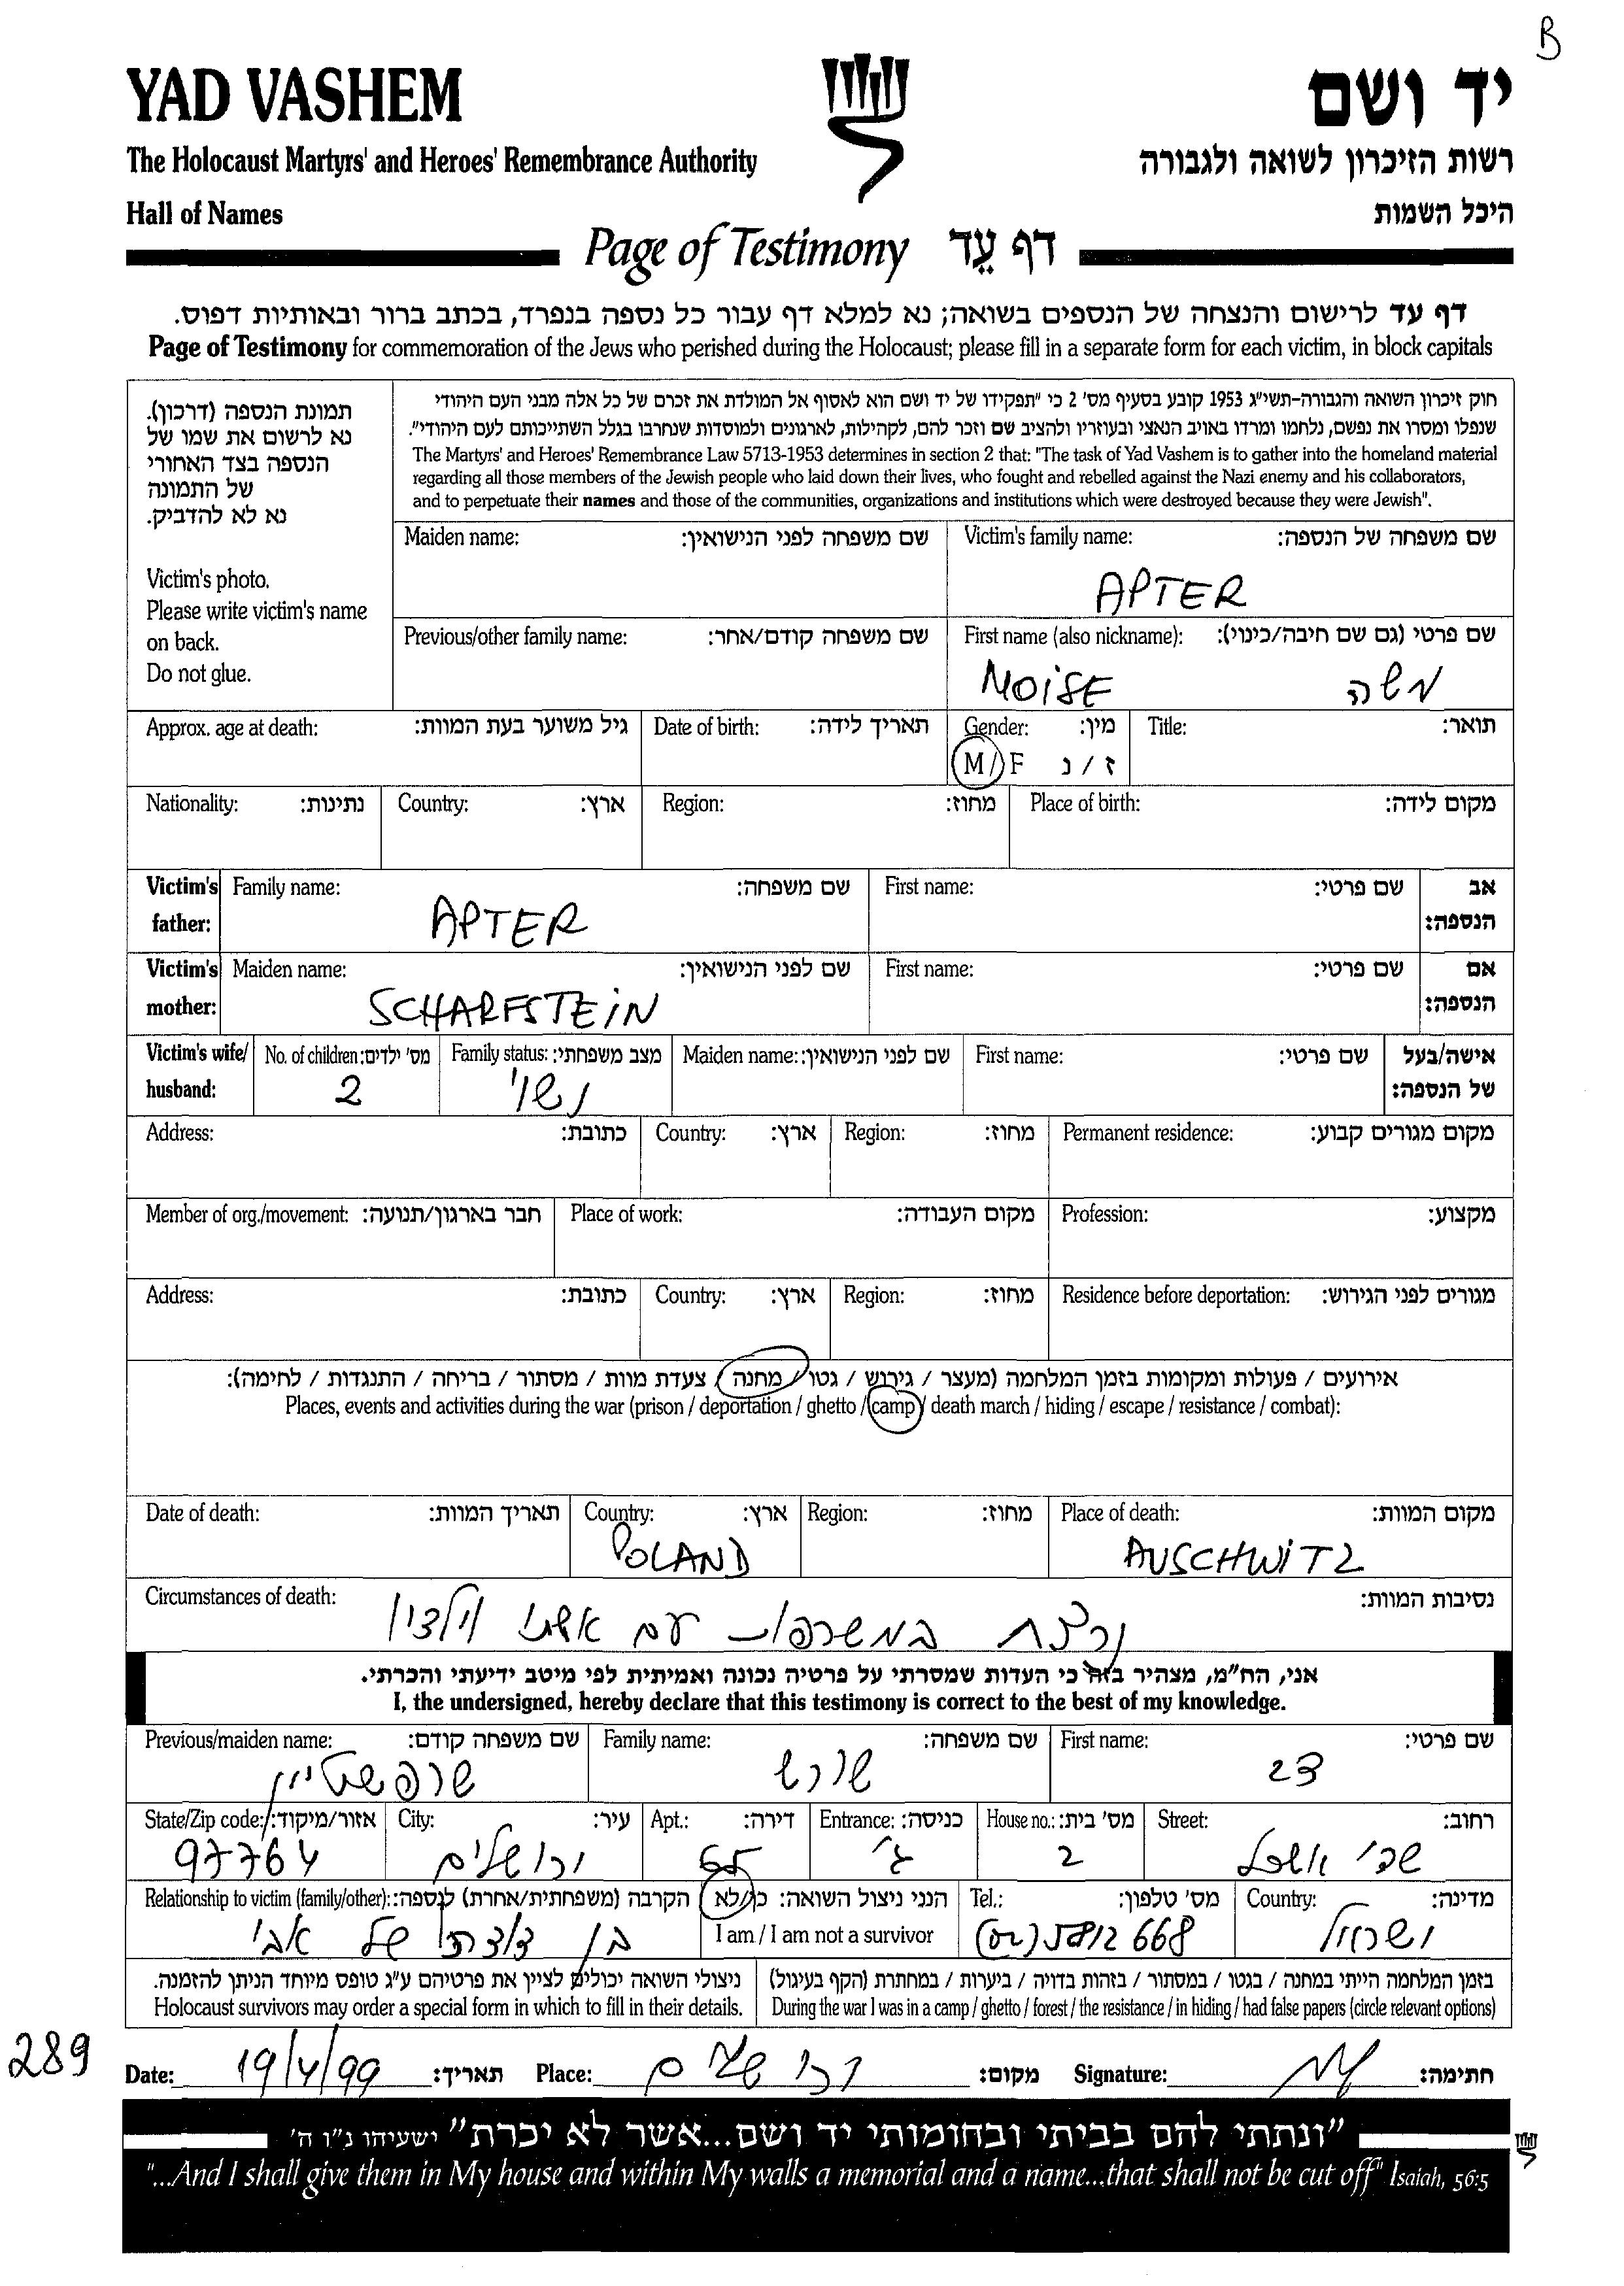 B
YAD VASHEM
יד ושם
The Holocaust Martyrs' and Heroes' Remembrance Authority
רשות הזיכרון לשואה ולגבורה
Hall of Names
היכל השמות
Page of Testimony דף עֵד
דף עד לרישום והנצחה של הנספים בשואה; נא למלא דף עבור כל נספה בנפרד, בכתב ברור ובאותיות דפוס.
Page of Testimony for commemoration of the Jews who perished during the Holocaust; please fill in a separate form for each victim, in block capitals
תמונת הנספה (דרכון).
נא לרשום את שמו של
הנספה בצד האחורי
של התמונה
נא לא להדביק.
Victim's photo.
Please write victim's name
on back.
Do not glue.
חוק זיכרון השואה והגבורה-תשי"ג 1953 קובע בסעיף מס' 2 כי "תפקידו של יד ושם הוא לאסוף אל המולדת את זכרם של כל אלה מבני העם היהודי
שנפלו ומסרו את נפשם, נלחמו ומרדו באויב הנאצי ובעוזריו ולהציב שם וזכר להם, לקהילות, לארגונים ולמוסדות שנחרבו בגלל השתייכותם לעם היהודי".
The Martyrs' and Heroes' Remembrance Law 5713-1953 determines in section 2 that: "The task of Yad Vashem is to gather into the homeland material
regarding all those members of the Jewish people who laid down their lives, who fought and rebelled against the Nazi enemy and his collaborators,
and to perpetuate their names and those of the communities, organizations and institutions which were destroyed because they were Jewish".
Maiden name: שם משפחה לפני הנישואין: Victim's family name: שם משפחה של הנספה:
APTER
Previous/other family name: שם משפחה קודם/אחר: First name (also nickname): שם פרטי (גם שם חיבה/כינוי):
MOISE משה
Approx. age at death: גיל משוער בעת המוות: Date of birth: תאריך לידה: Gender: מין: Title: תואר:
M / F ז / נ
Nationality: נתינות: Country: ארץ: Region: מחוז: Place of birth: מקום לידה:
Victim's father: Family name: שם משפחה: First name: שם פרטי: אב הנספה:
APTER
Victim's mother: Maiden name: שם לפני הנישואין: First name: שם פרטי: אם הנספה:
SCHARFSTEIN
Victim's wife/ husband: No. of children: מס' ילדים: Family status: מצב משפחתי: Maiden name: שם לפני הנישואין: First name: שם פרטי: אישה/בעל של הנספה:
2 נשוי
Address: כתובת: Country: ארץ: Region: מחוז: Permanent residence: מקום מגורים קבוע:
Member of org./movement: חבר בארגון/תנועה: Place of work: מקום העבודה: Profession: מקצוע:
Address: כתובת: Country: ארץ: Region: מחוז: Residence before deportation: מגורים לפני הגירוש:
אירועים / פעולות ומקומות בזמן המלחמה (מעצר / גירוש / גטו / מחנה / צעדת מוות / מסתור / בריחה / התנגדות / לחימה):
Places, events and activities during the war (prison / deportation / ghetto / camp / death march / hiding / escape / resistance / combat):
Date of death: תאריך המוות: Country: ארץ: Region: מחוז: Place of death: מקום המוות:
POLAND AUSCHWITZ
Circumstances of death: נסיבות המוות:
נרצח במשרפות עם אשתו וילדיו
אני, הח"מ, מצהיר בזה כי העדות שמסרתי על פרטיה נכונה ואמיתית לפי מיטב ידיעתי והכרתי.
I, the undersigned, hereby declare that this testimony is correct to the best of my knowledge.
Previous/maiden name: שם משפחה קודם: Family name: שם משפחה: First name: שם פרטי:
שרפשטיין שורש
State/Zip code: אזור/מיקוד: City: עיר: Apt.: דירה: Entrance: כניסה: House no.: מס' בית: Street: רחוב:
97764 ירושלים 65 ג' 2 שד' אשכול
Relationship to victim (family/other): הקרבה (משפחתית/אחרת) לנספה: הנני ניצול השואה: כן/לא Tel.: מס' טלפון: Country: מדינה:
בן דודתו של אבי I am / I am not a survivor (02) 5812668 ישראל
ניצולי השואה יכולים לציין את פרטיהם ע"ג טופס מיוחד הניתן להזמנה.
Holocaust survivors may order a special form in which to fill in their details.
בזמן המלחמה הייתי במחנה / בגטו / במסתור / בזהות בדויה / ביערות / במחתרת (הקף בעיגול)
During the war I was in a camp / ghetto / forest / the resistance / in hiding / had false papers (circle relevant options)
289
Date: 19/4/99 תאריך: Place: ירושלים מקום: Signature: חתימה:
"ונתתי להם בביתי ובחומותי יד ושם...אשר לא יכרת" ישעיהו נ"ו ה'
"...And I shall give them in My house and within My walls a memorial and a name...that shall not be cut off" Isaiah, 56:5